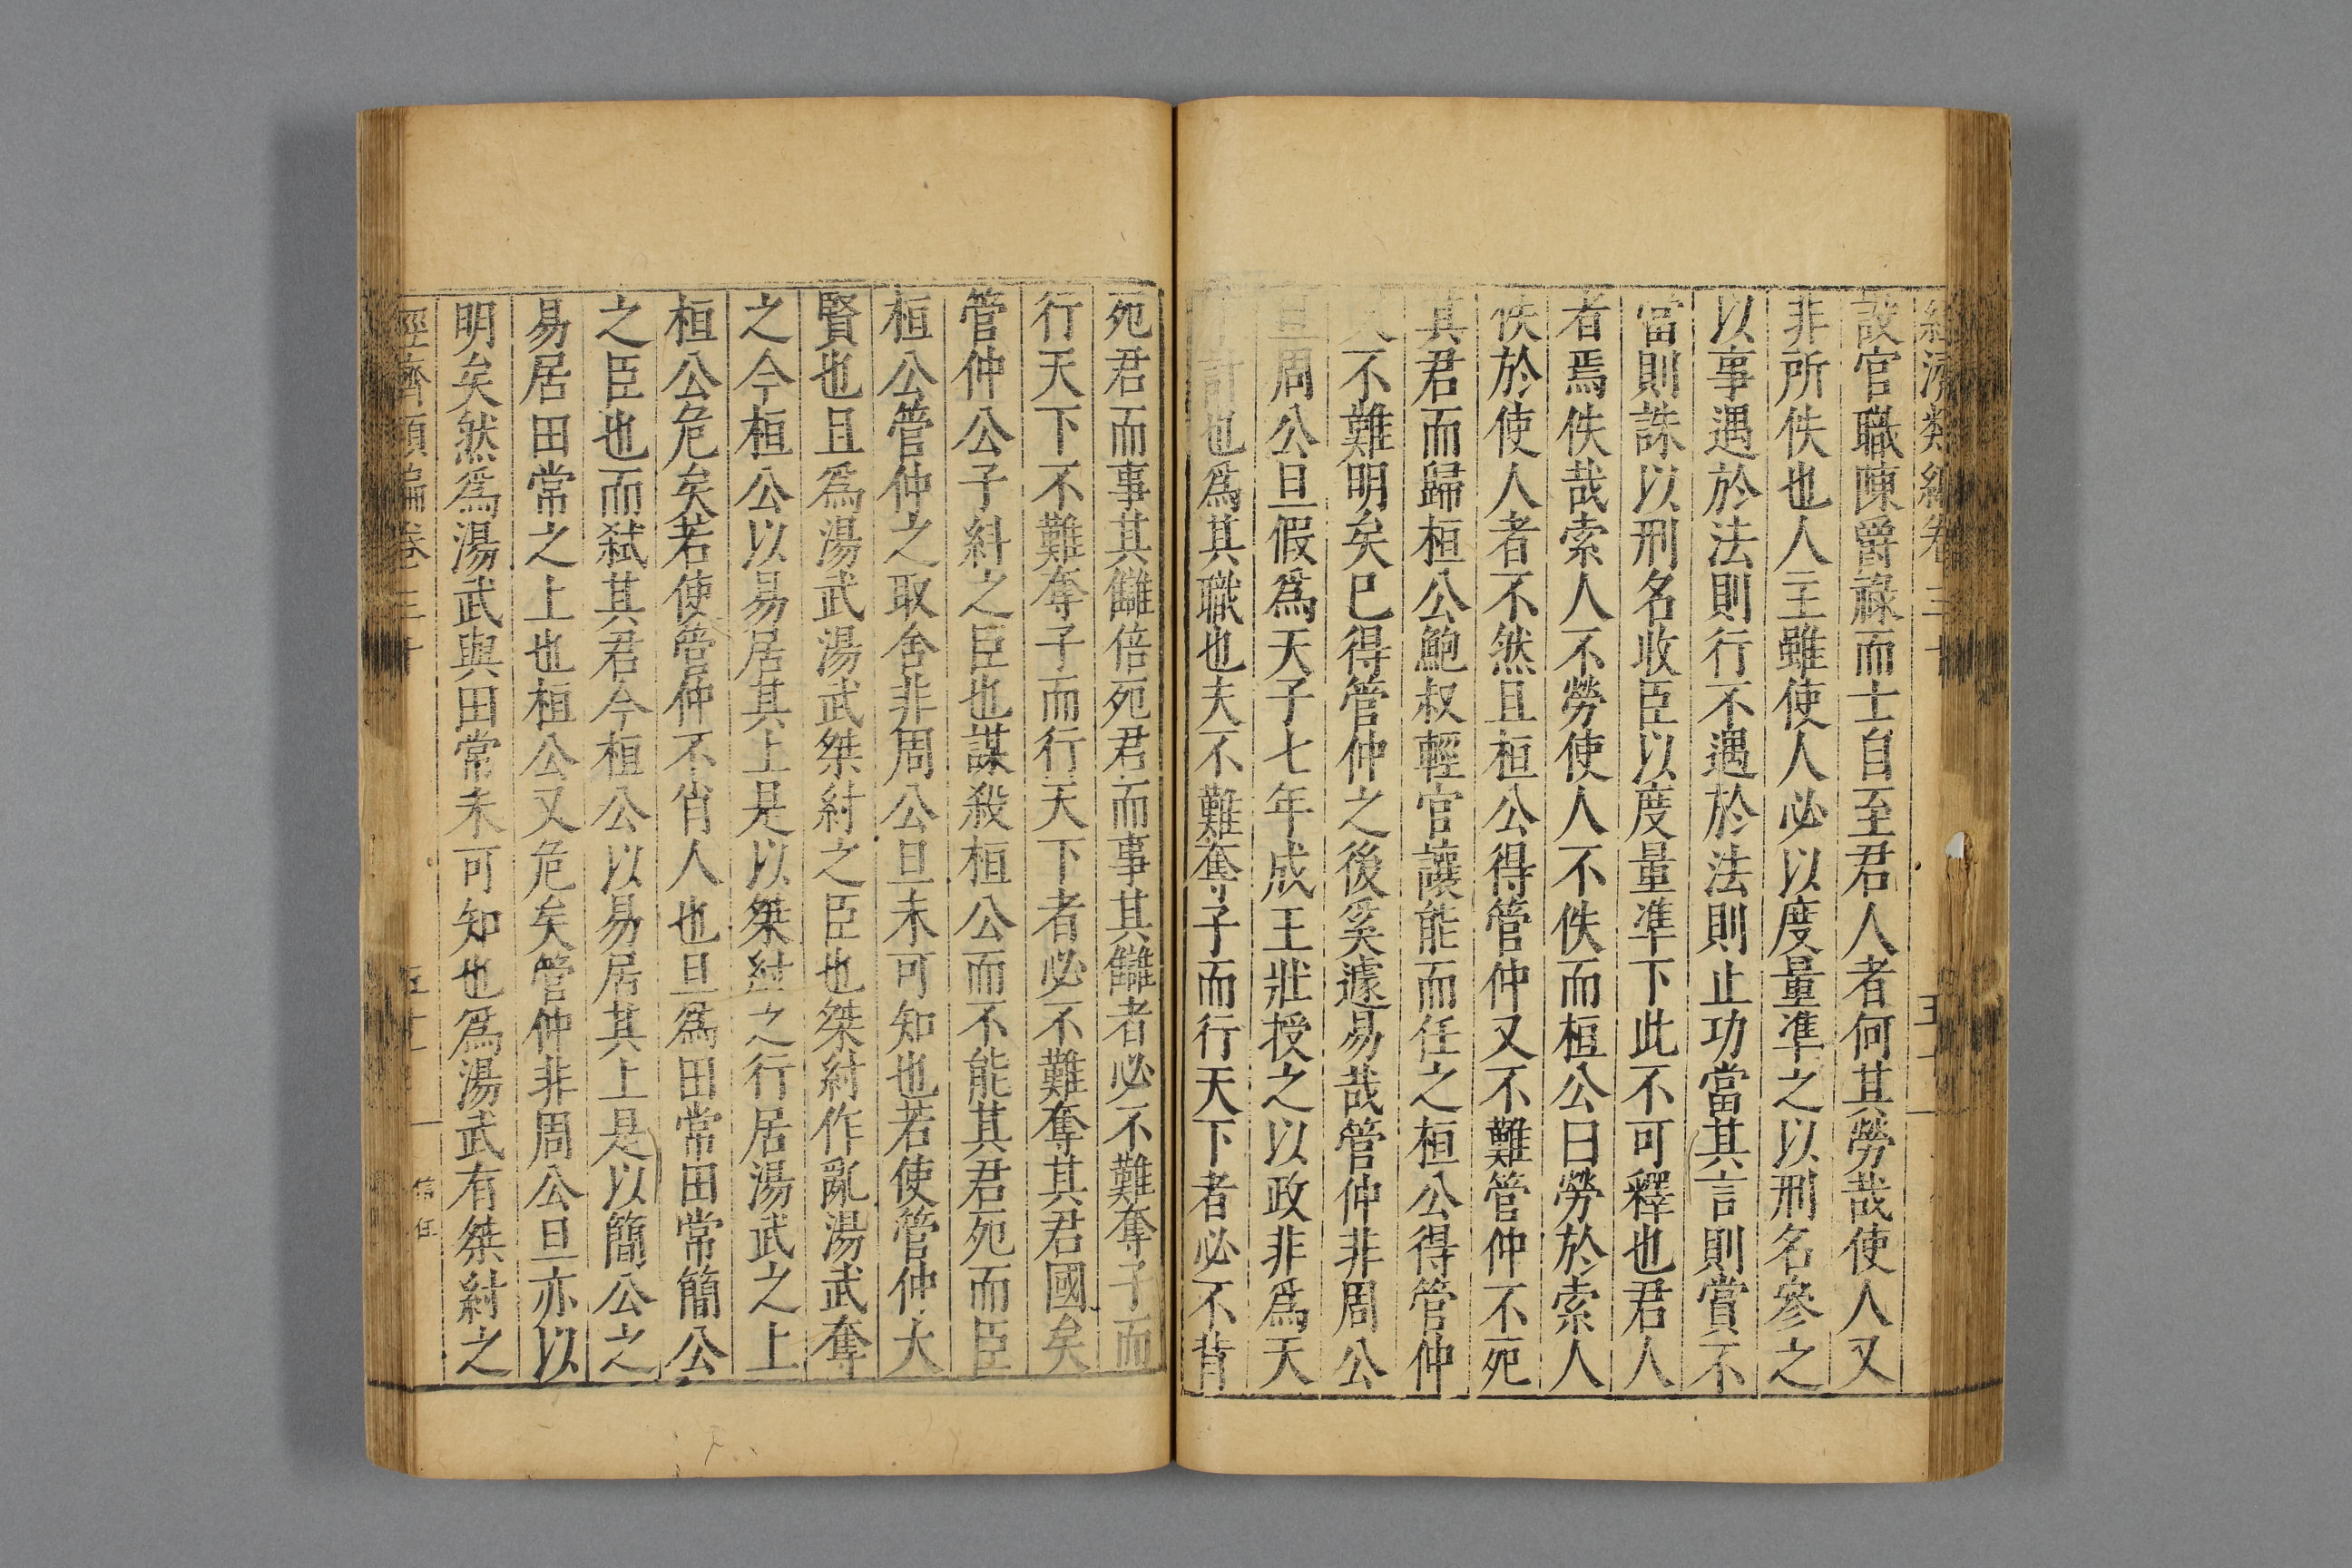 設官職陳爵祿而士自至君人者何其勞哉使人又
非所佚也人主雖使人必以度量準之以刑名參之
以事遇於法則行不遇於法則止功當其言則賞不
當則誅以刑名收臣以度量準下此不可釋也君人
者焉佚哉索人不勞使人不佚而桓公曰勞於索人
佚於使人者不然且桓公得管仲又不難管仲不死
其君而歸桓公鮑叔輕官讓能而任之桓公得管仲
又不難明矣已得管仲之後奚遽易哉管仲非周公
旦周公旦假爲天子七年成王壯授之以政非爲天
計也爲其職也夫不難奪子而行天下者必不背
死君而事其讎倍死君而事其讎者必不難奪子而
行天下不難奪子而行天下者必不難奪其君國矣
管仲公子糾之臣也謀殺桓公而不能其君死而臣
桓公管仲之取舍非周公旦未可知也若使管仲大
賢也且爲湯武湯武桀紂之臣也桀紂作亂湯武奪
之今桓公以易居其上是以桀紂之行居湯武之上
桓公危矣若使管仲不肖人也且爲田常田常簡公
之臣也而弑其君今桓公以易居其上是以簡公之
易居田常之上也桓公又危矣管仲非周公旦亦以
明矣然爲湯武與田常未可知也爲湯武有桀紂之
經濟類編卷三十
信任